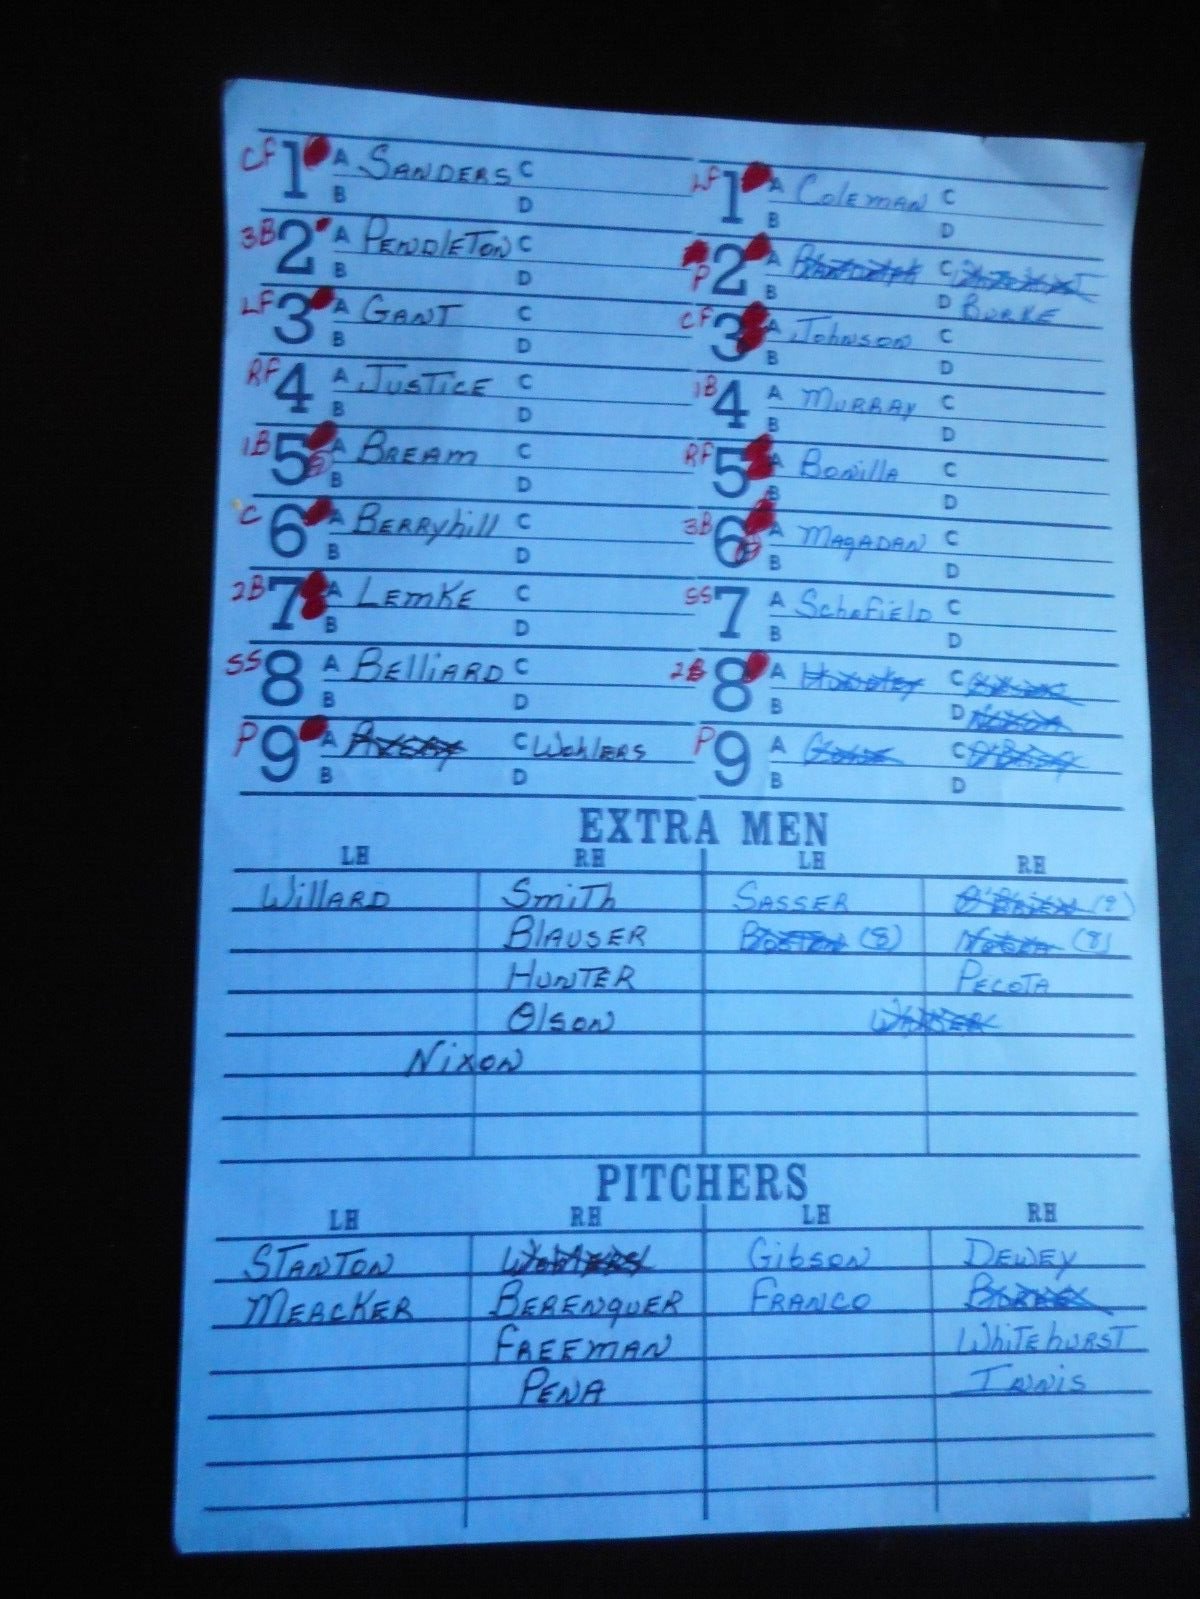 CF 1 A SANDERS C
B D
3B 2 A PENDLETON C
B D
LF 3 A GANT C
B D
RF 4 A JUSTICE C
B D
1B 5 A BREAM C
B D
C 6 A BERRYhill C
B D
2B 7 A LEMKE C
B D
SS 8 A BElliARD C
B D
P 9 A C WohlERS
B D
LF 1 A ColEMAN C
B D
P 2 A C
B D BURKE
CF 3 A Johnson C
B D
1B 4 A MURRAY C
B D
RF 5 A Bonilla C
B D
3B 6 A MAgADAN C
B D
SS 7 A SchofiElD C
B D
2B 8 A C
B D
P 9 A C O'BRIEN
B D
EXTRA MEN
LH RH LH RH
WillARD SmiTh SASSER O'BRIEN (9)
BlAUSER (8) (8)
HUNTER PECOTA
OlSON
NixON
PITCHERS
LH RH LH RH
STANTON WohlERS GibSON DEWEY
MERCKER BERENQUER FRANCO BURKE
FREEMAN WhiTEhURST
PENA INNIS